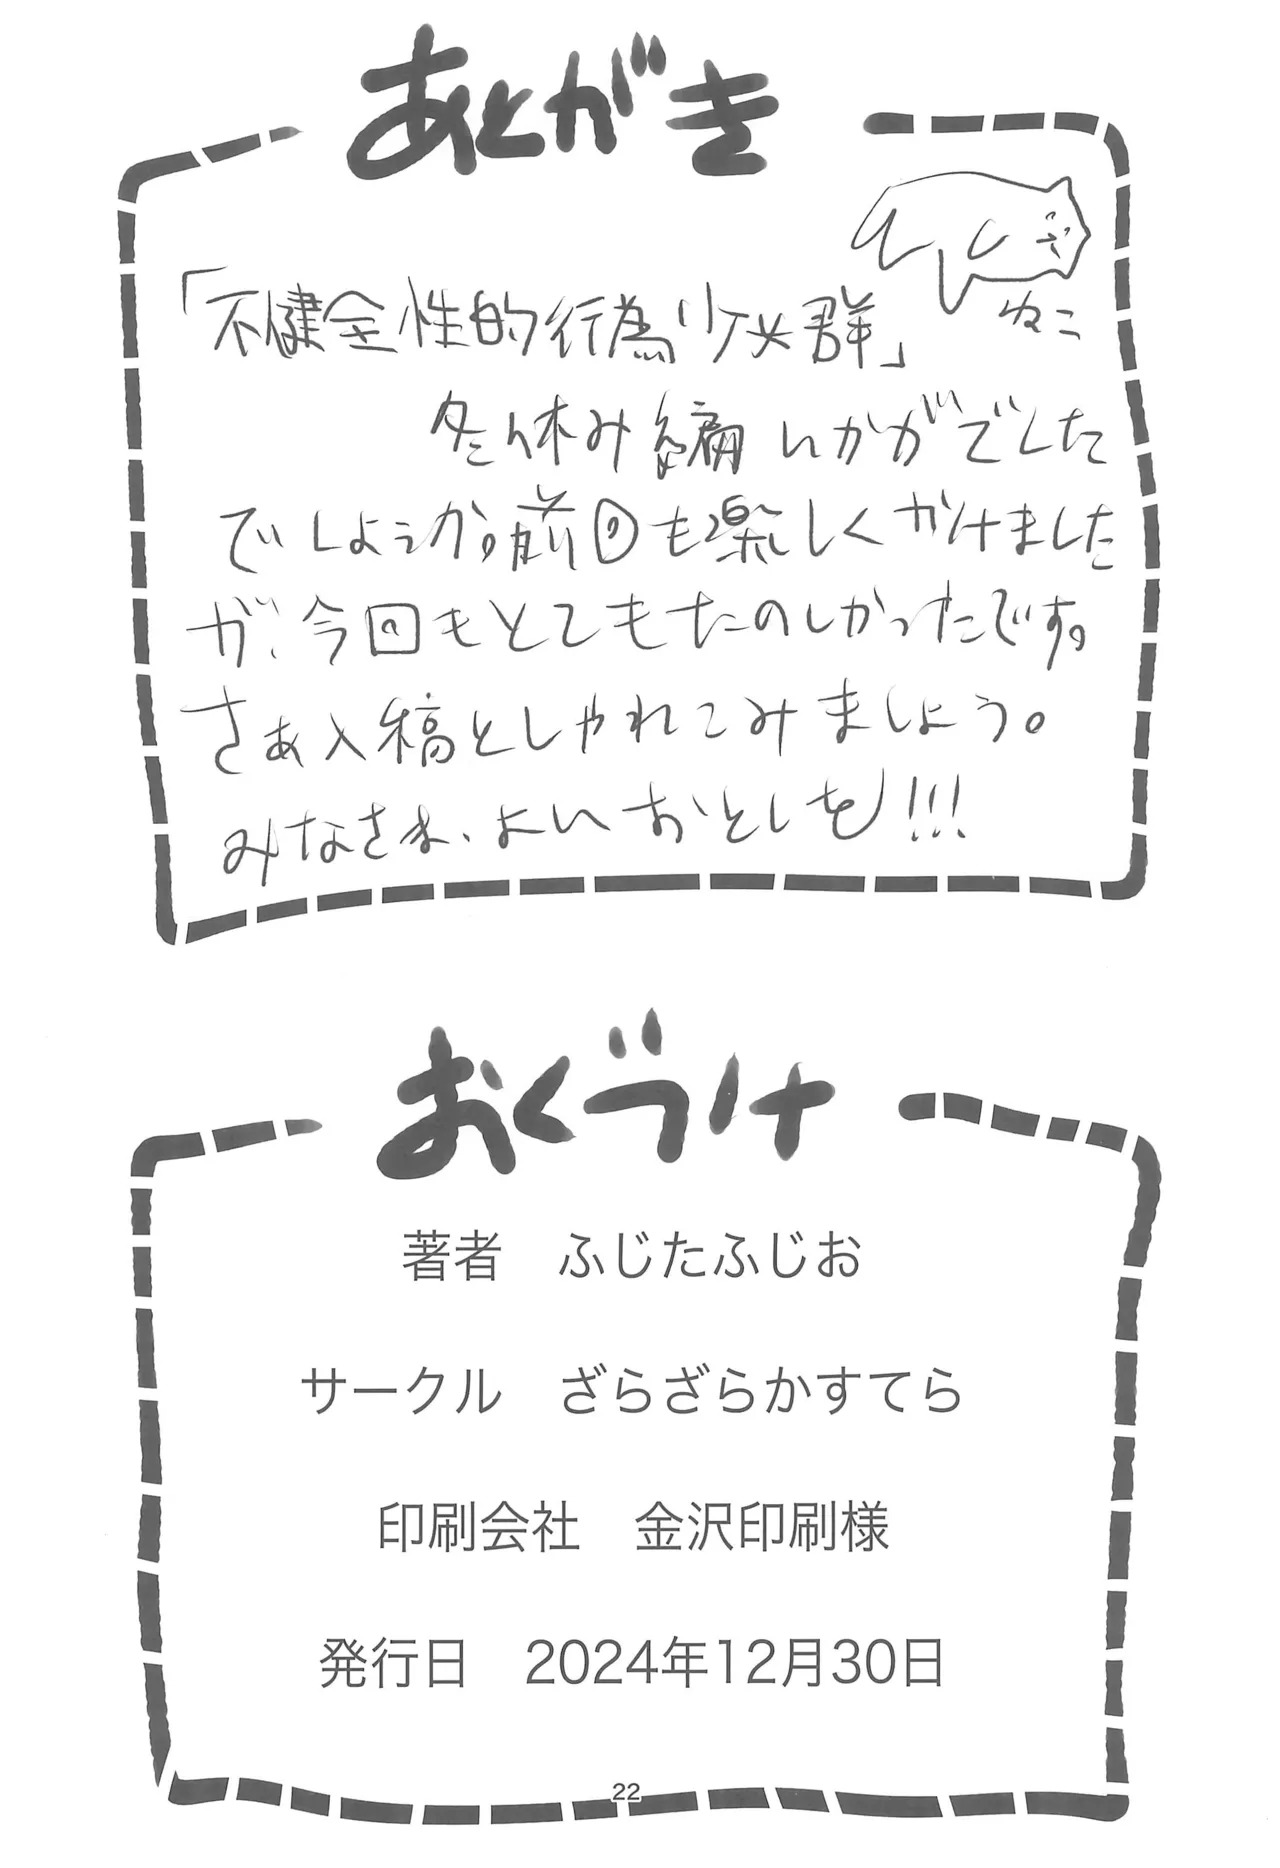 あとがき
ねこ
「不健全性的行為少女群」
冬休み編 いかがでした
でしょうか。前回も楽しくかけました
が、今回もとてもたのしかったです。
さぁ入稿としゃれこみましょう。
みなさま、よいおとしを!!!
おくづけ
著者 ふじたふじお
サークル ざらざらかすてら
印刷会社 金沢印刷様
発行日 2024年12月30日
22